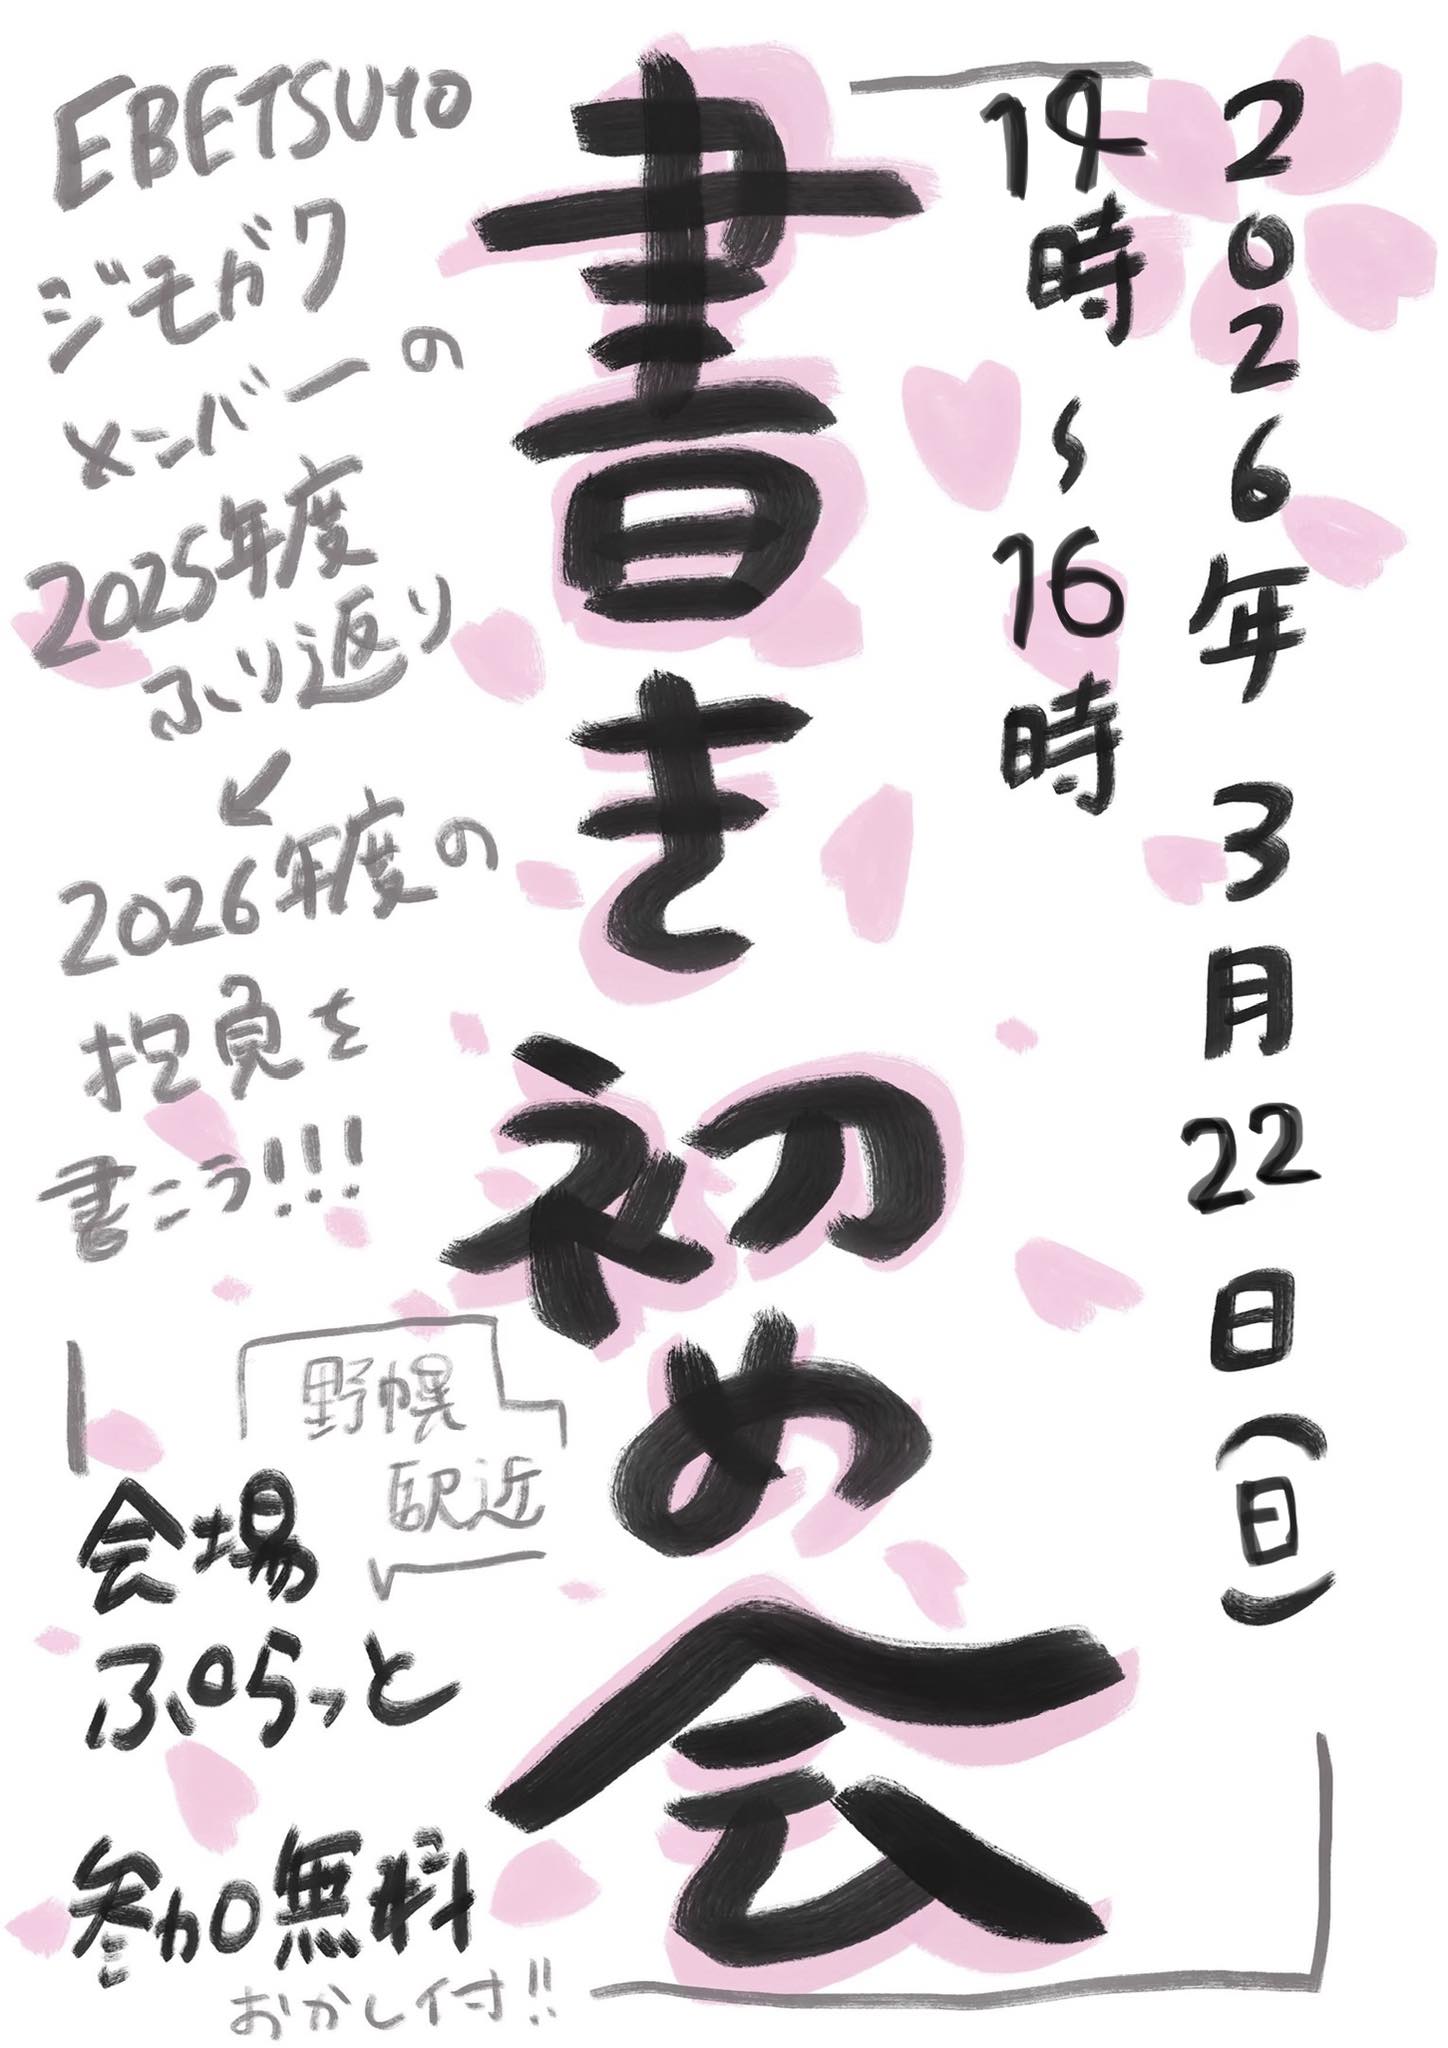 2026年 3月 22日(日)
14時〜16時
書き初め会
EBETSUto
ジモガク
メンバーの
2025年度
ふり返り
↙
2026年度の
抱負を
書こう!!!
野幌
駅近
会場
ぷらっと
参加無料
おかし付!!